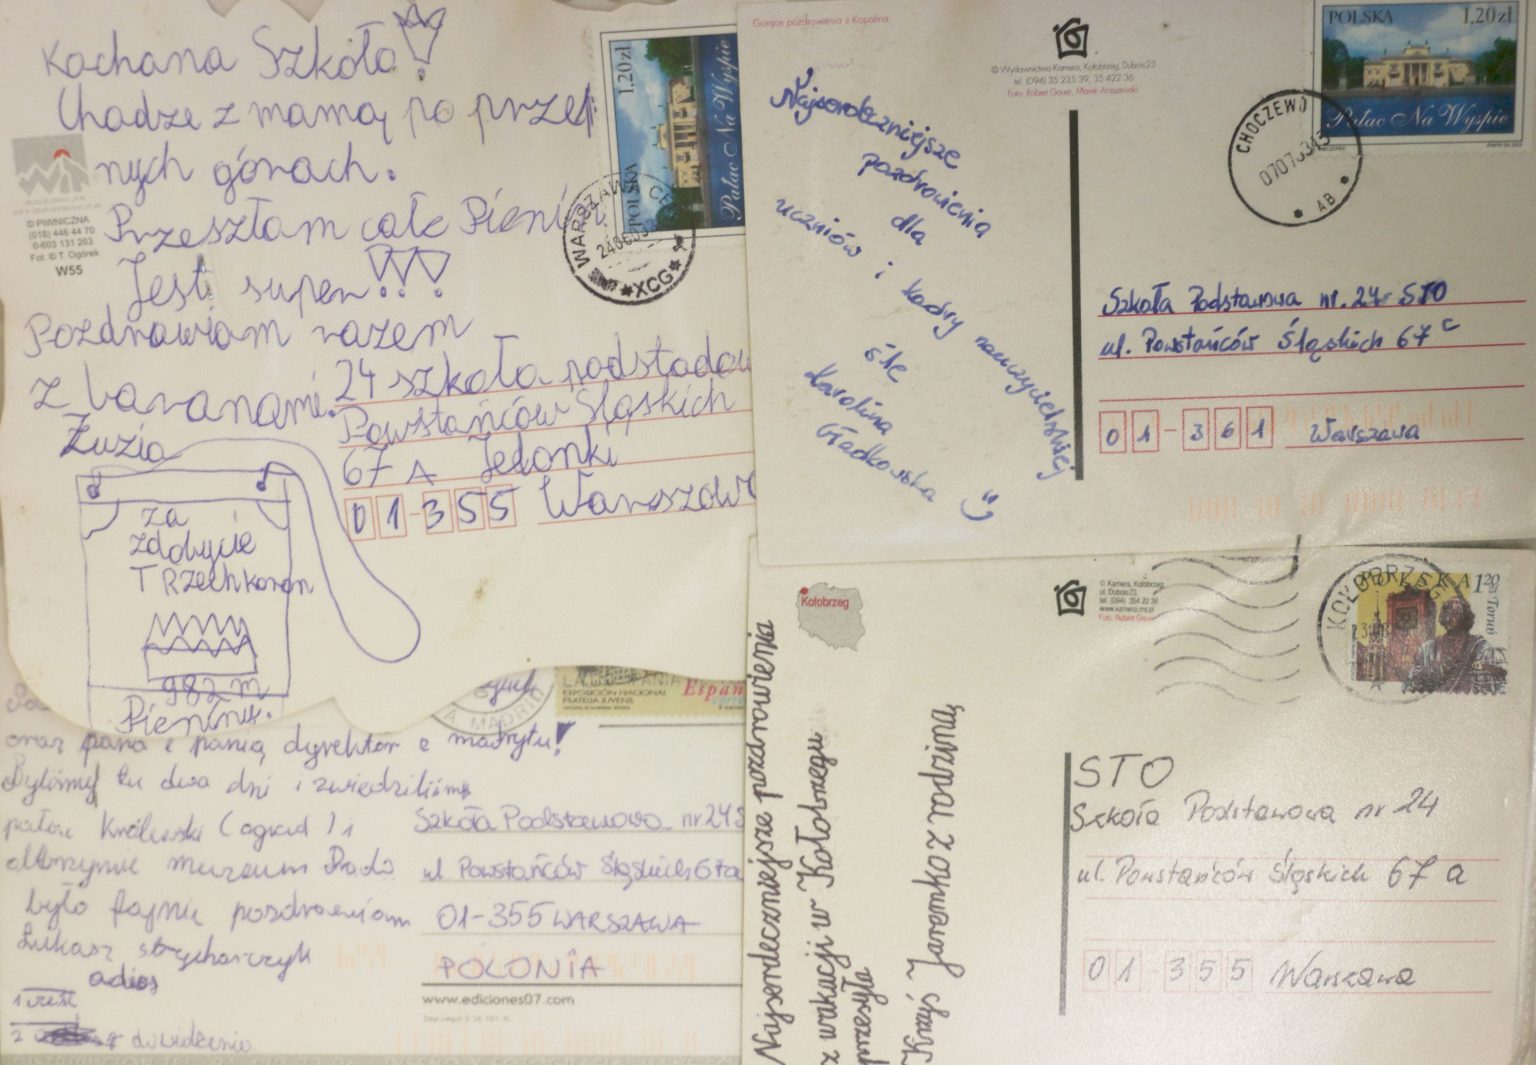 Kochana Szkoło!
Chodzę z mamą po przep.
nych górach.
Przeszłam całe Pieni
Jest super!!!
Pozdrawiam razem
z baranami.
Zuzia
AGENCJA
WYDAWNICZA
© PIWNICZNA
(018) 446 44 70
0-603 131 263
Fot. © T. Ogórek
W55
1,20zł
POLSKA
Pałac Na Wyspie
WARSZAWA
XCG
24 szkoła podstadow
Powstańców Śląskich
67 A Jelonki
01-355 Warszawa
za
zdobycie
TRzech koron
982 m
Pieniny.
Gorące pozdrowienia z Kopalina.
© Wydawnictwo Kamera, Kołobrzeg, Dubois 23
tel. (094) 35 235 39, 35 422 36
Foto: Robert Gauer, Marek Araszewski
POLSKA 1,20zł
Pałac Na Wyspie
CHOCZEWO
AB
Najserdeczniejsze
pozdrowienia
dla
uczniów i kadry nauczycielskiej
śle
Karolina
Gładkowska
Szkoła Podstawowa nr. 24-STO
ul. Powstańców Śląskich 67c
01-361 Warszawa
oraz pana i panią dyrektor z madrytu!
Byliśmy tu dwa dni i zwiedziliśmy
pałac Królewski (ogród) i
olbrzymie muzeum Prado
było fajnie pozdrawiam
Łukasz strycharczyk
adios
1 cześć
2 dowidzenia
MADRID
EXPOSICIÓN NACIONAL
FILATELIA JUVENIL
Españ
Szkoła Podstawowa nr 24 S
ul. Powstańców Śląskich 67a
01-355 WARSZAWA
POLONIA
www.ediciones07.com
Kołobrzeg
© Kamera, Kołobrzeg
ul. Dubois 23,
tel. (094) 354 22 36
www.kamera.ms.pl
Foto: Robert Gauer
KOŁOBRZEG
POLSKA 1 20
Toruń
Najserdeczniejsze pozdrowienia
z wakacji w Kołobrzegu
przesyła
Krzyś Jaremko z rodziną
STO
Szkoła Podstawowa nr 24
ul. Powstańców Śląskich 67 a
01-355 Warszawa